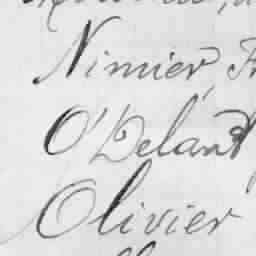 Nimier, Fr
O'Delant
Olivier